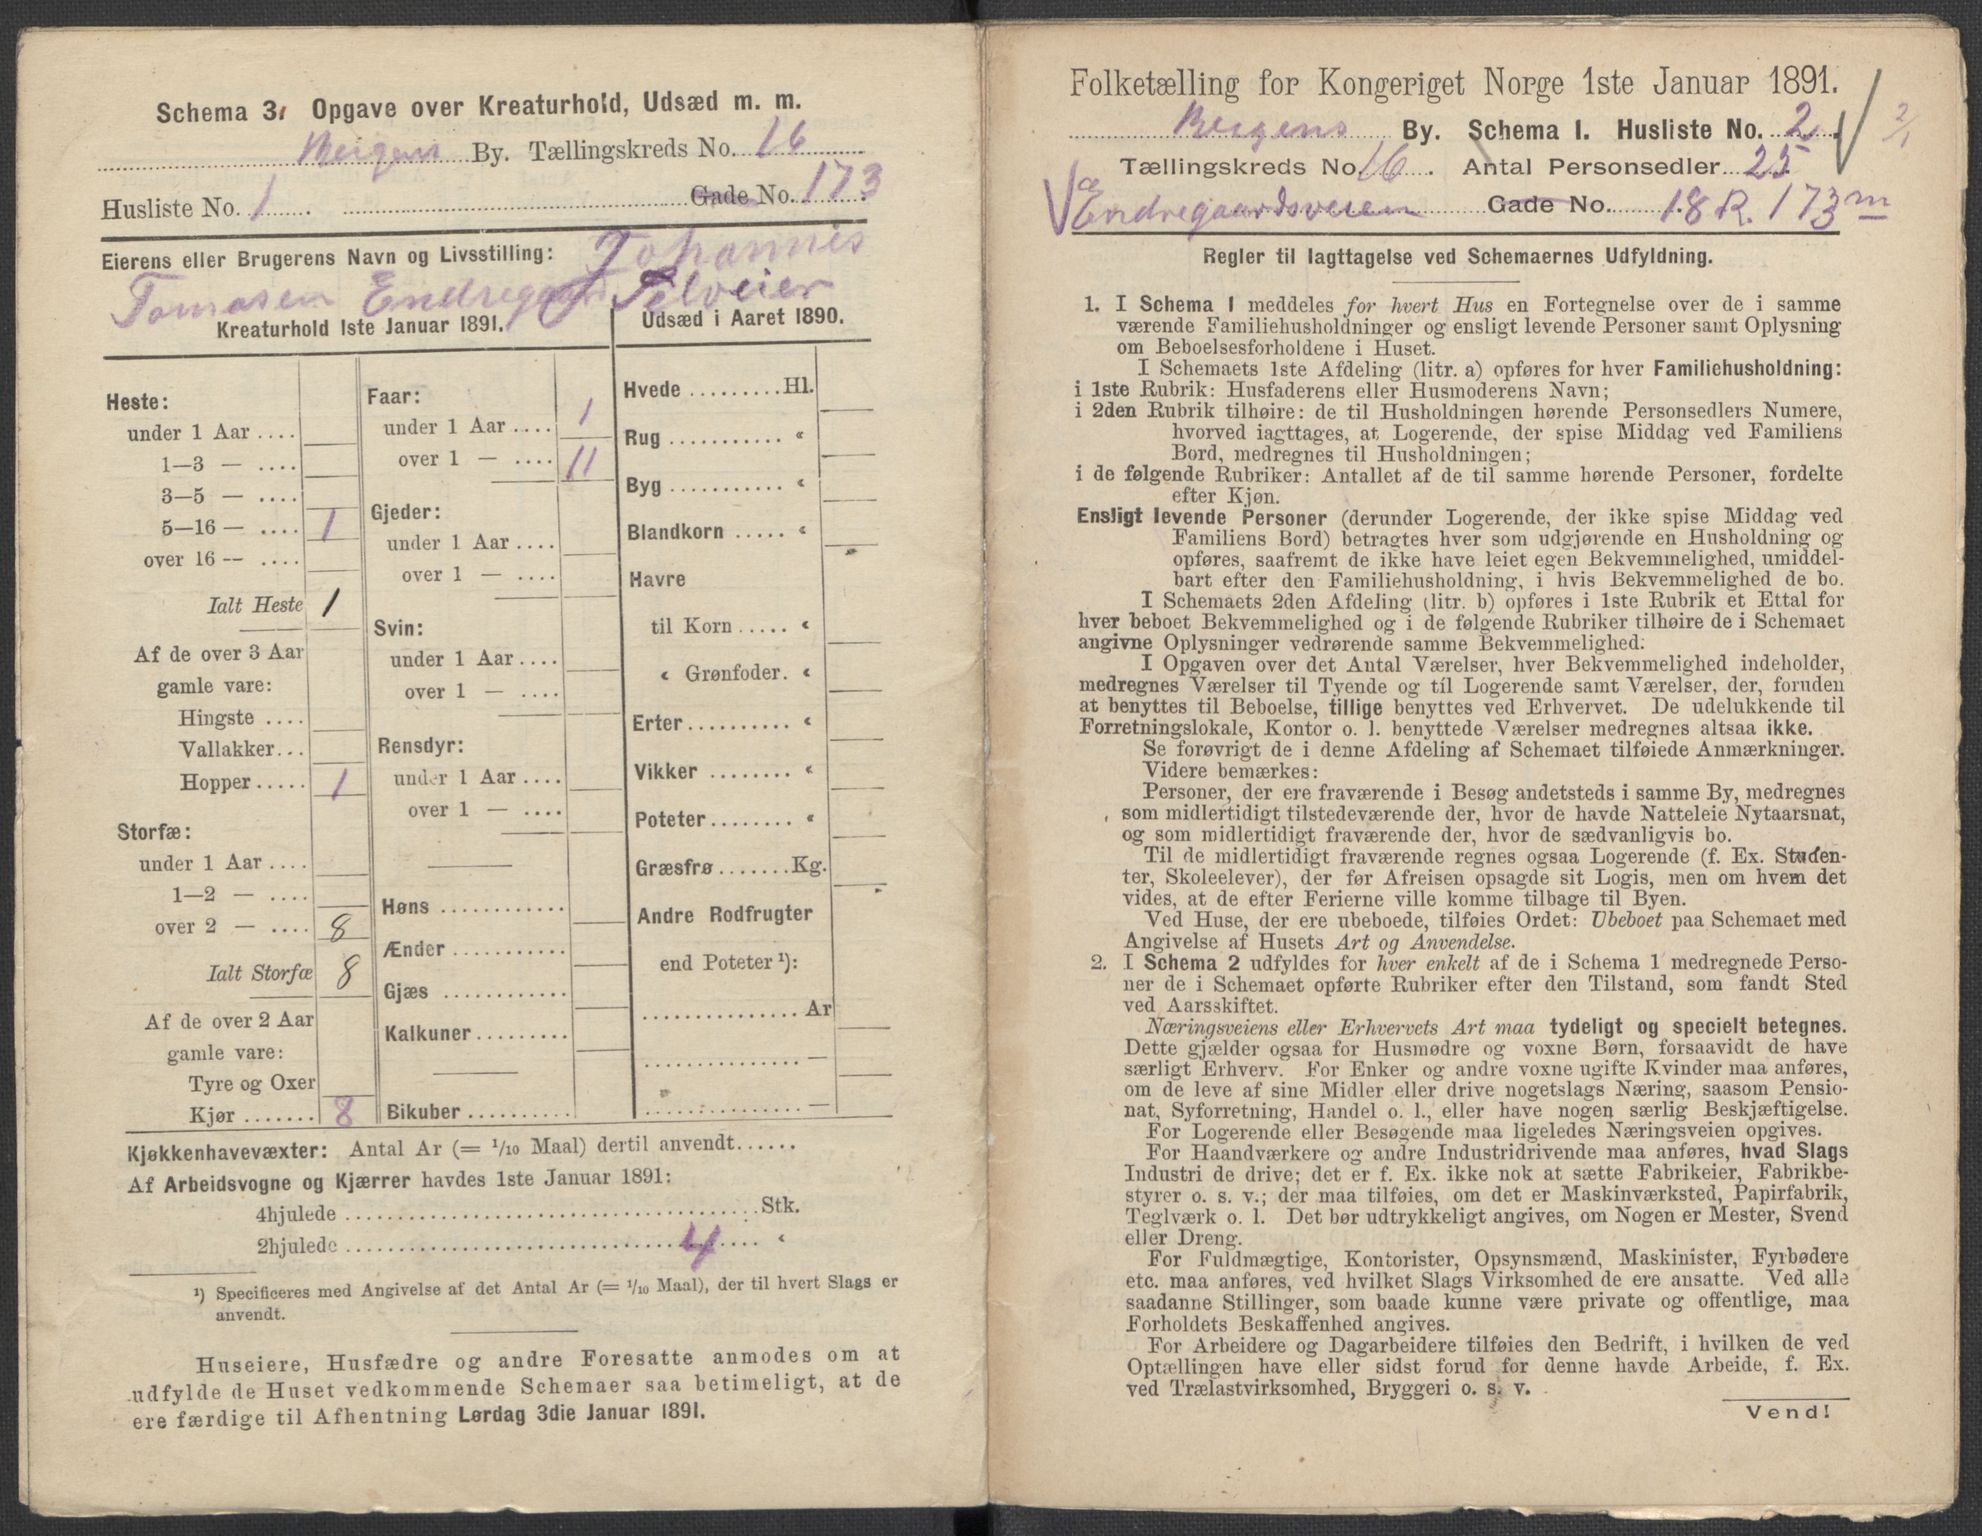 Schema 3. Opgave over Kreaturhold, Udsæd m. m.
Bergens By. Tællingskreds No. 16
Husliste No. 1 Gade No. 173
Eierens eller Brugerens Navn og Livsstilling: Johannis
Tomasen Endregaard Selveier
Kreaturhold 1ste Januar 1891.
Heste:
under 1 Aar ....
1—3 — ....
3—5 — ....
5—16 — .... 1
over 16 — ....
Ialt Heste 1
Af de over 3 Aar
gamle vare:
Hingste ....
Vallakker...
Hopper..... 1
Storfæ:
under 1 Aar ....
1—2 — ....
over 2 — .... 8
Ialt Storfæ 8
Af de over 2 Aar
gamle vare:
Tyre og Oxer
Kjør ....... 8
Faar:
under 1 Aar .... 1
over 1 — .... 11
Gjeder:
under 1 Aar ....
over 1 — ....
Svin:
under 1 Aar ....
over 1 — ....
Rensdyr:
under 1 Aar ....
over 1 — ....
Høns ............
Ænder ...........
Gjæs ............
Kalkuner .........
Bikuber ..........
Udsæd i Aaret 1890.
Hvede .........Hl.
Rug ........... «
Byg ........... «
Blandkorn ..... «
Havre
til Korn ..... «
« Grønfoder. «
Erter ......... «
Vikker ........ «
Poteter ........ «
Græsfrø .......Kg.
Andre Rodfrugter
end Poteter ¹):
............... Ar
............... —
............... —
Kjøkkenhavevæxter: Antal Ar (= 1/10 Maal) dertil anvendt......
Af Arbeidsvogne og Kjærrer havdes 1ste Januar 1891:
4hjulede ........................................ Stk.
2hjulede ................................ 4 .... «
¹) Specificeres med Angivelse af det Antal Ar (= 1/10 Maal), der til hvert Slags er
anvendt.
Huseiere, Husfædre og andre Foresatte anmodes om at
udfylde de Huset vedkommende Schemaer saa betimeligt, at de
ere færdige til Afhentning Lørdag 3die Januar 1891.
Folketælling for Kongeriget Norge 1ste Januar 1891.
Bergens By. Schema 1. Husliste No. 2 2/1
Tællingskreds No. 16. Antal Personsedler 25
Endregaardsveien Gade No. 18 R. 173 m
Regler til Iagttagelse ved Schemaernes Udfyldning.
1. I Schema 1 meddeles for hvert Hus en Fortegnelse over de i samme
værende Familiehusholdninger og ensligt levende Personer samt Oplysning
om Beboelsesforholdene i Huset.
I Schemaets 1ste Afdeling (litr. a) opføres for hver Familiehusholdning:
i 1ste Rubrik: Husfaderens eller Husmoderens Navn;
i 2den Rubrik tilhøire: de til Husholdningen hørende Personsedlers Numere,
hvorved iagttages, at Logerende, der spise Middag ved Familiens
Bord, medregnes til Husholdningen;
i de følgende Rubriker: Antallet af de til samme hørende Personer, fordelte
efter Kjøn.
Ensligt levende Personer (derunder Logerende, der ikke spise Middag ved
Familiens Bord) betragtes hver som udgjørende en Husholdning og
opføres, saafremt de ikke have leiet egen Bekvemmelighed, umiddel-
bart efter den Familiehusholdning, i hvis Bekvemmelighed de bo.
I Schemaets 2den Afdeling (litr. b) opføres i 1ste Rubrik et Ettal for
hver beboet Bekvemmelighed og i de følgende Rubriker tilhøire de i Schemaet
angivne Oplysninger vedrørende samme Bekvemmelighed.
I Opgaven over det Antal Værelser, hver Bekvemmelighed indeholder,
medregnes Værelser til Tyende og til Logerende samt Værelser, der, foruden
at benyttes til Beboelse, tillige benyttes ved Erhvervet. De udelukkende til
Forretningslokale, Kontor o. l. benyttede Værelser medregnes altsaa ikke.
Se forøvrigt de i denne Afdeling af Schemaet tilføiede Anmærkninger.
Videre bemærkes:
Personer, der ere fraværende i Besøg andetsteds i samme By, medregnes
som midlertidigt tilstedeværende der, hvor de havde Natteleie Nytaarsnat,
og som midlertidigt fraværende der, hvor de sædvanligvis bo.
Til de midlertidigt fraværende regnes ogsaa Logerende (f. Ex. Studen-
ter, Skoleelever), der før Afreisen opsagde sit Logis, men om hvem det
vides, at de efter Ferierne ville komme tilbage til Byen.
Ved Huse, der ere ubeboede, tilføies Ordet: Ubeboet paa Schemaet med
Angivelse af Husets Art og Anvendelse.
2. I Schema 2 udfyldes for hver enkelt af de i Schema 1 medregnede Perso-
ner de i Schemaet opførte Rubriker efter den Tilstand, som fandt Sted
ved Aarsskiftet.
Næringsveiens eller Erhvervets Art maa tydeligt og specielt betegnes.
Dette gjælder ogsaa for Husmødre og voxne Børn, forsaavidt de have
særligt Erhverv. For Enker og andre voxne ugifte Kvinder maa anføres,
om de leve af sine Midler eller drive nogetslags Næring, saasom Pensio-
nat, Syforretning, Handel o. l., eller have nogen særlig Beskjæftigelse.
For Logerende eller Besøgende maa ligeledes Næringsveien opgives.
For Haandværkere og andre Industridrivende maa anføres, hvad Slags
Industri de drive; det er f. Ex. ikke nok at sætte Fabrikeier, Fabrikbe-
styrer o. s. v.; der maa tilføies, om det er Maskinværksted, Papirfabrik,
Teglværk o. l. Det bør udtrykkeligt angives, om Nogen er Mester, Svend
eller Dreng.
For Fuldmægtige, Kontorister, Opsynsmænd, Maskinister, Fyrbødere
etc. maa anføres, ved hvilket Slags Virksomhed de ere ansatte. Ved alle
saadanne Stillinger, som baade kunne være private og offentlige, maa
Forholdets Beskaffenhed angives.
For Arbeidere og Dagarbeidere tilføies den Bedrift, i hvilken de ved
Optællingen have eller sidst forud for denne havde Arbeide, f. Ex.
ved Trælastvirksomhed, Bryggeri o. s. v.
Vend!